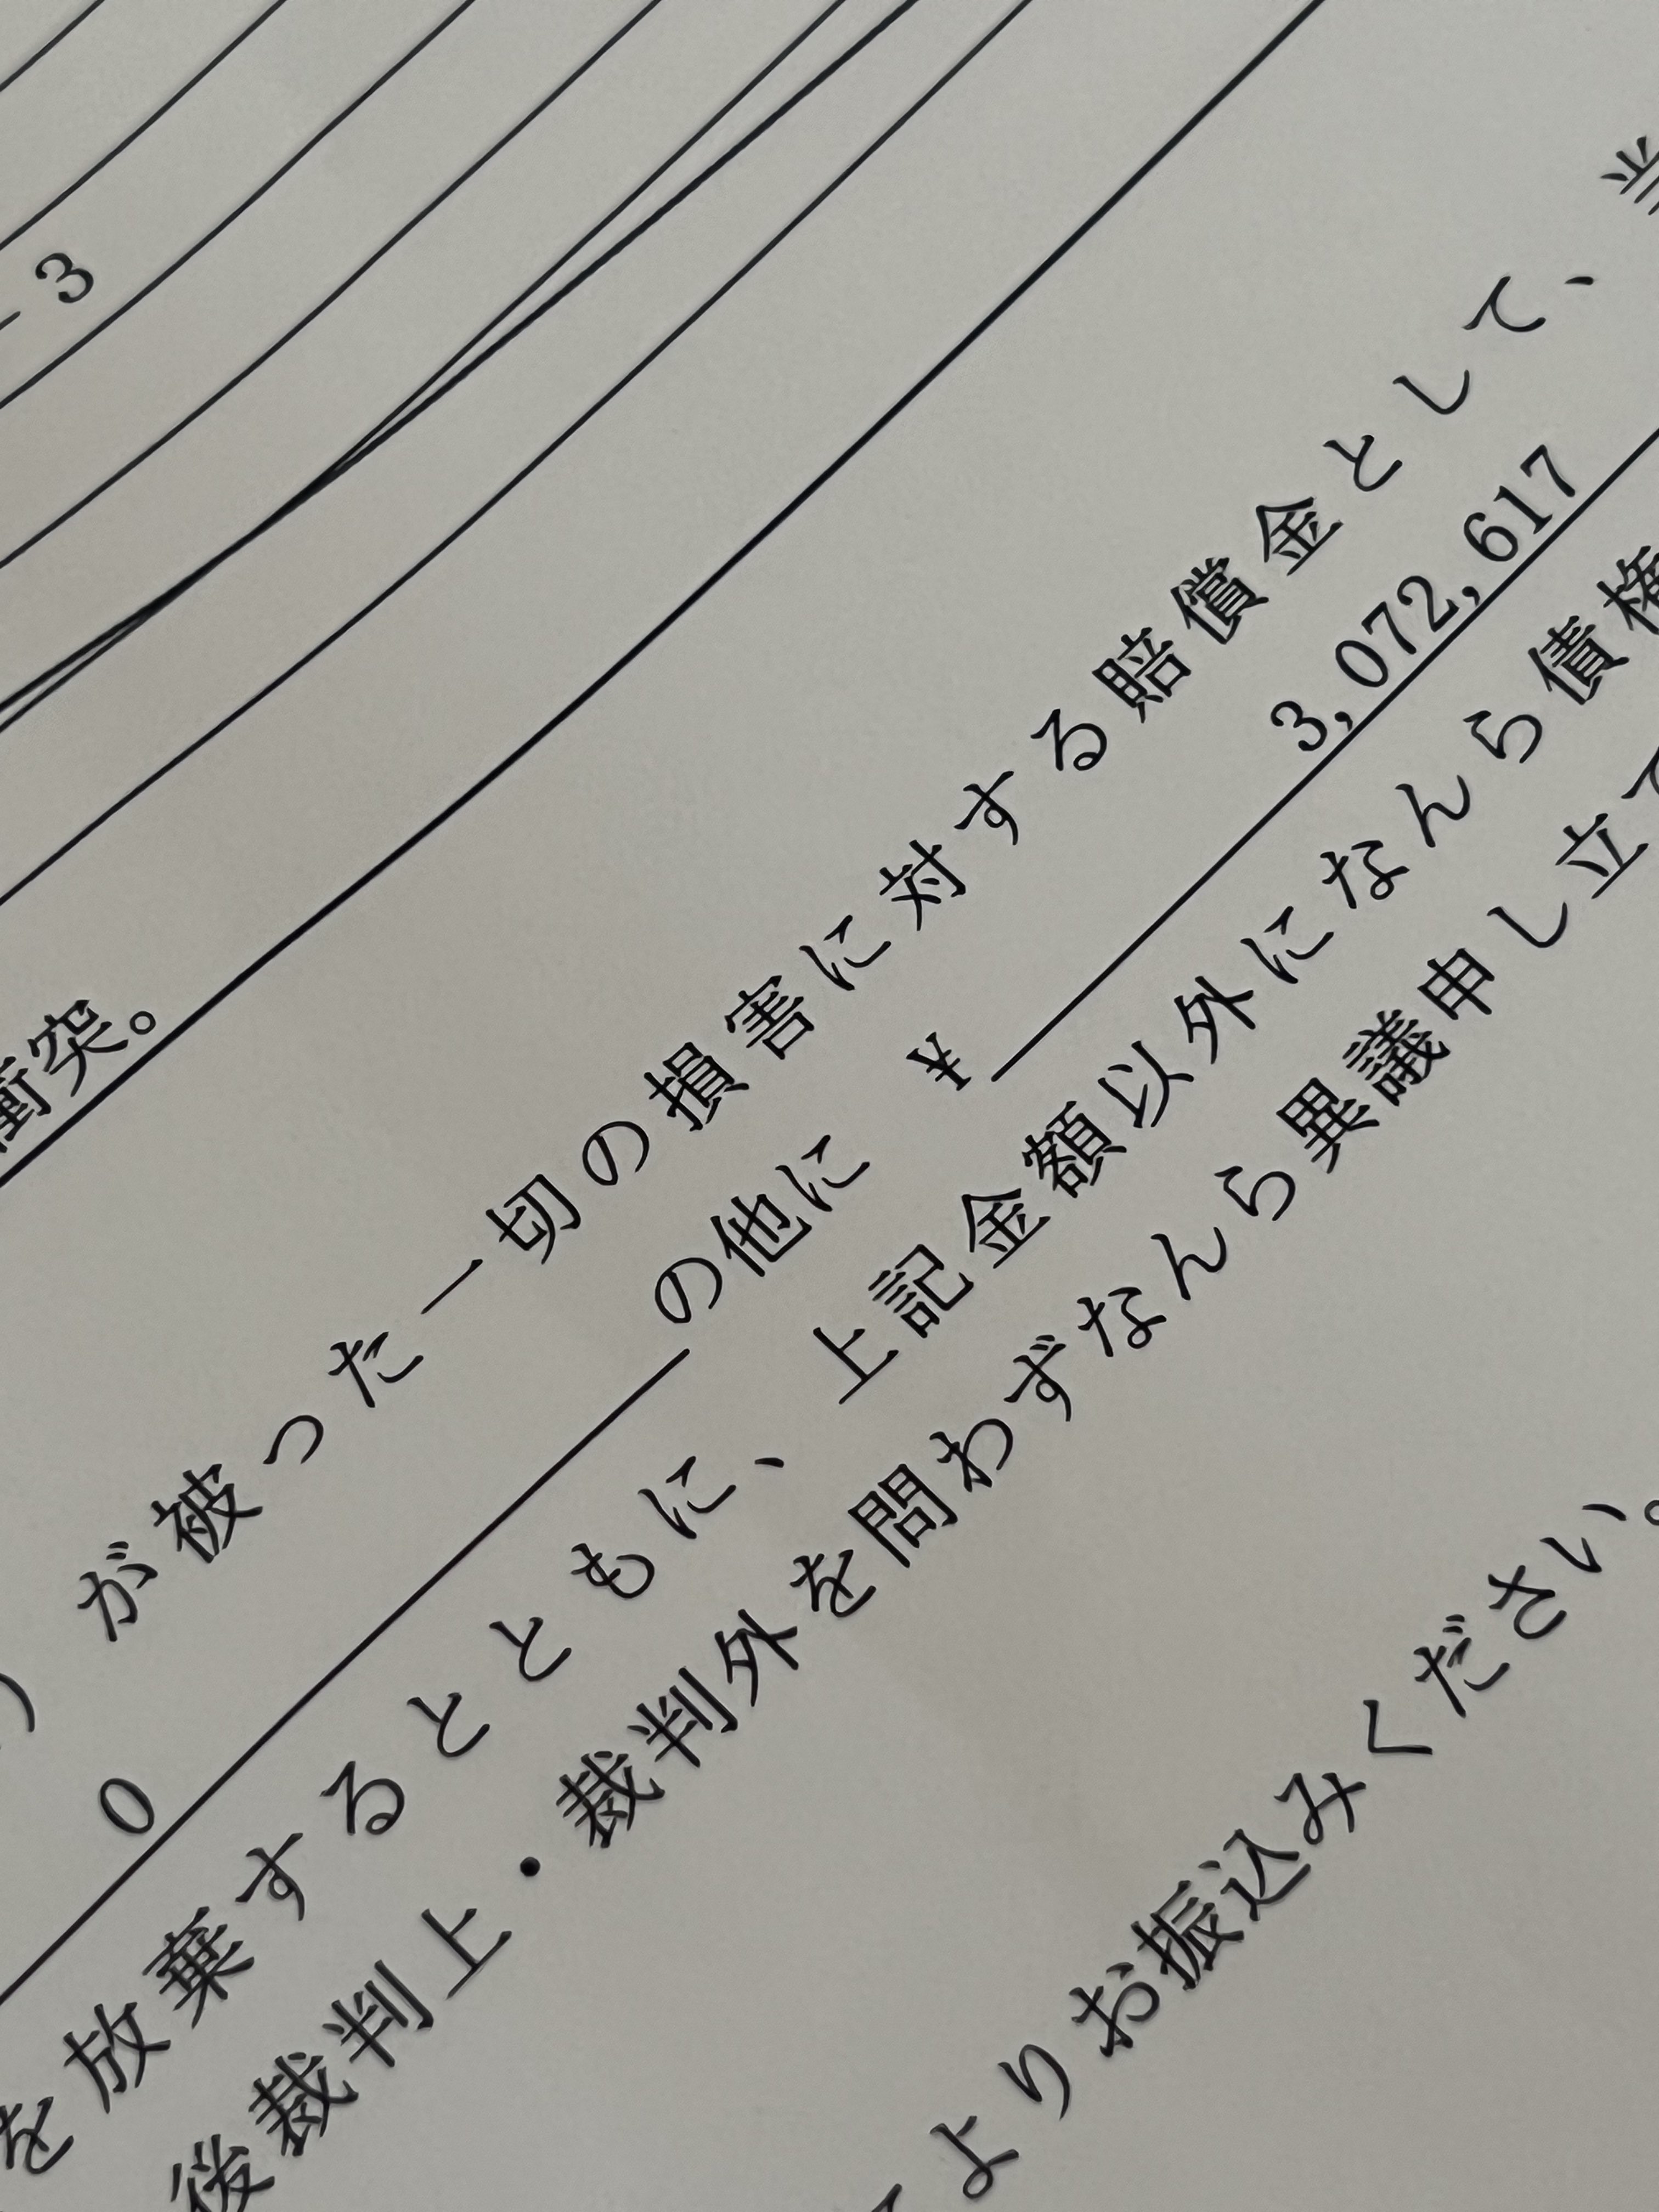 -3
衝突。
)が被った一切の損害に対する賠償金として、当
0 の他に ¥ 3,072,617
を放棄するとともに、上記金額以外になんら債権
後裁判上・裁判外を問わずなんら異議申し立て
よりお振込みください。